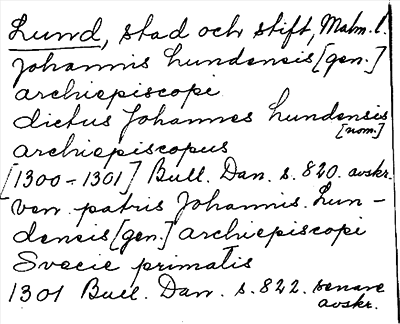 Lund, stad och stift, Malm. l.
Johannis Lundensis [gen.]
archiepiscopi
dictus Johannes Lundensis [nom.]
archiepiscopus
[1300-1301] Bull. Dan. s. 820. avskr.
ven. patris Johannis. Lun-
densis [gen.] archiepiscopi
Svecie primatis
1301 Bull. Dan. s. 822. senare
avskr.